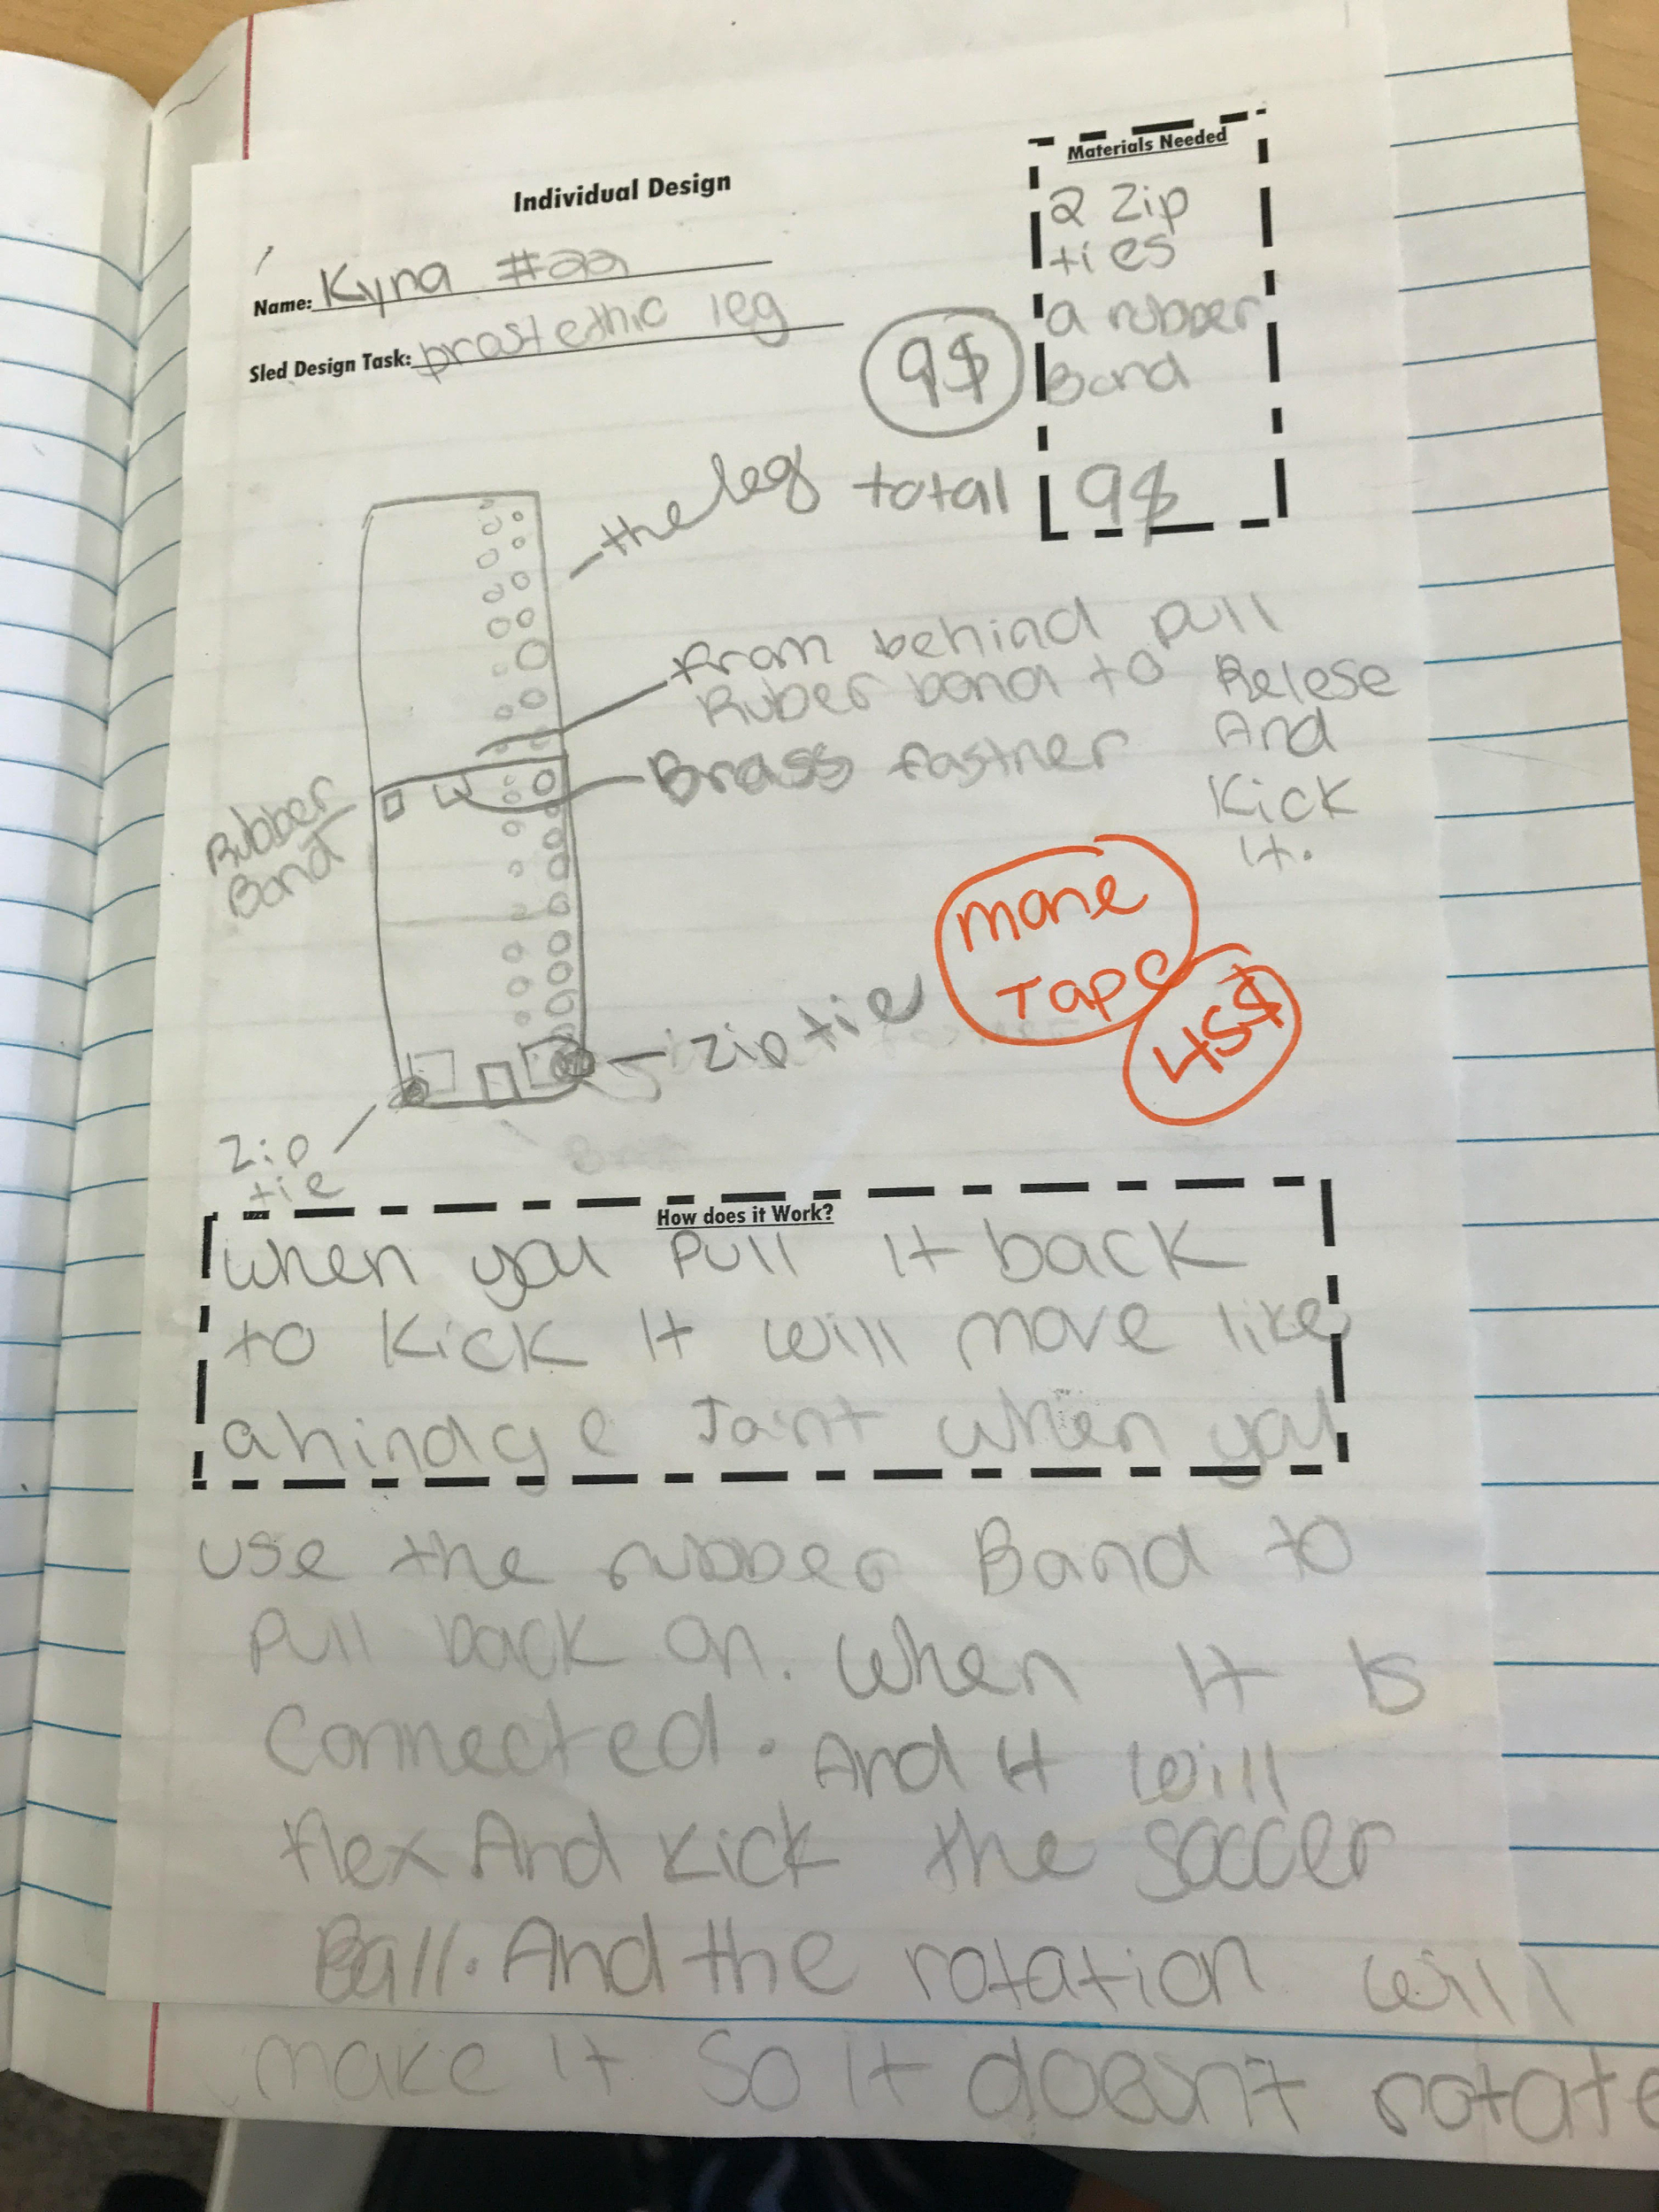 Individual Design
Materials Needed
2 Zip
ties
a rubber
Band
9$
Name: Kyra #22
Sled Design Task: prostethic leg
9$
total
the leg
from behind pull
Ruber band to Relese
And
Kick
it.
Brass fastner
Rubber
Band
more
Tape
45$
Zip tie
Zip
tie
How does it Work?
when you Pull it back
to Kick it will move like
a hindge Joint when you
use the rubber Band to
Pull back on. When it is
Connected. And it will
flex And Kick the soccer
Ball. And the rotation will
make it so it doesnt rotate